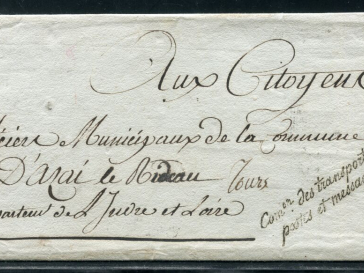 Aux Citoyens
ficiers Municipaux de la Commune
D'Azai le Rideau Tours
partem.t de L'Indre et Loire
Com.on des transports
postes et messag